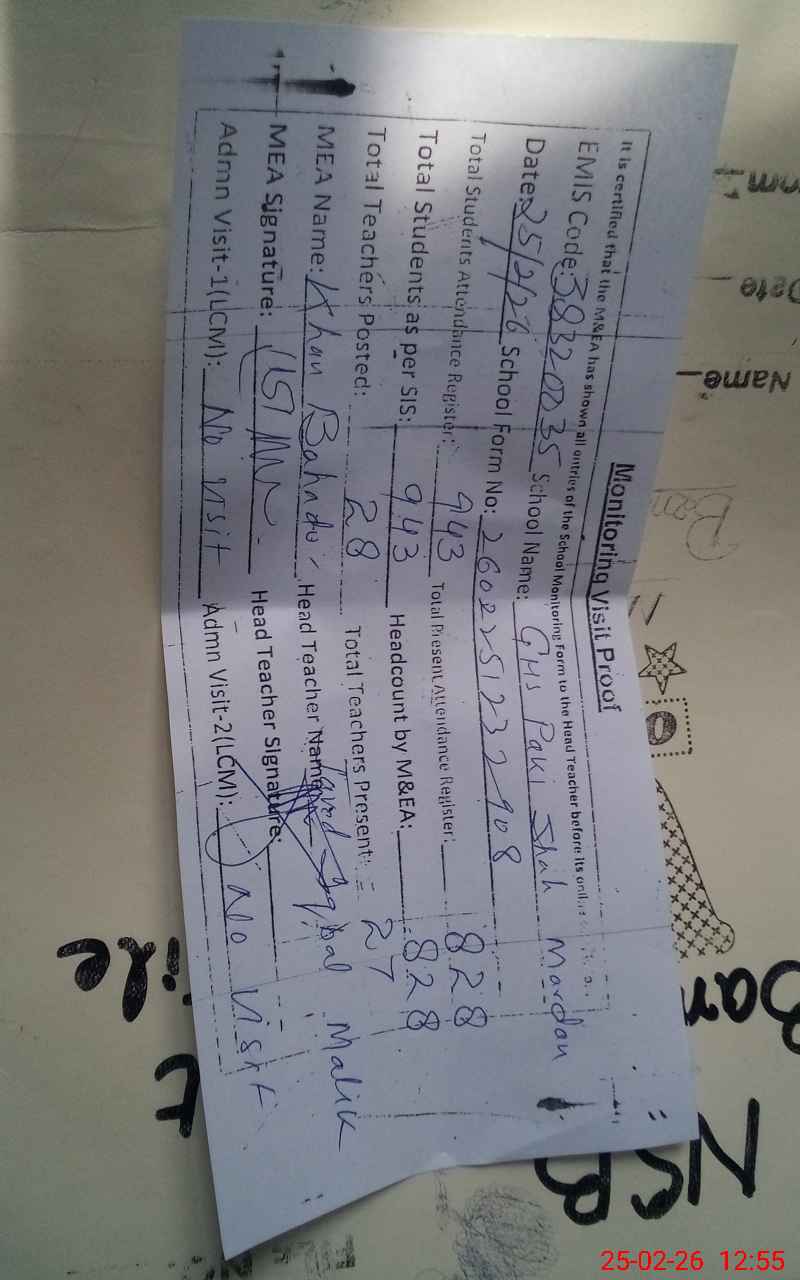 Monitoring Visit Proof
It is certified that the M&EA has shown all entries of the School Monitoring Form to the Head Teacher before its
EMIS Code: 38320035 School Name: GHS Paki Shah Mardan
Date: 25/2/26 School Form No: 2602251232908
Total Students Attendance Register: 943 Total Present Attendance Register: 828
Total Students as per SIS: 943 Headcount by M&EA: 828
Total Teachers Posted: 28 Total Teachers Present: 27
MEA Name: Khan Bahadur Head Teacher Name: Javed Iqbal Malik
MEA Signature: Head Teacher Signature:
Admn Visit-1(LCM): No visit Admn Visit-2(LCM): No visit
Name
Date
25-02-26 12:55